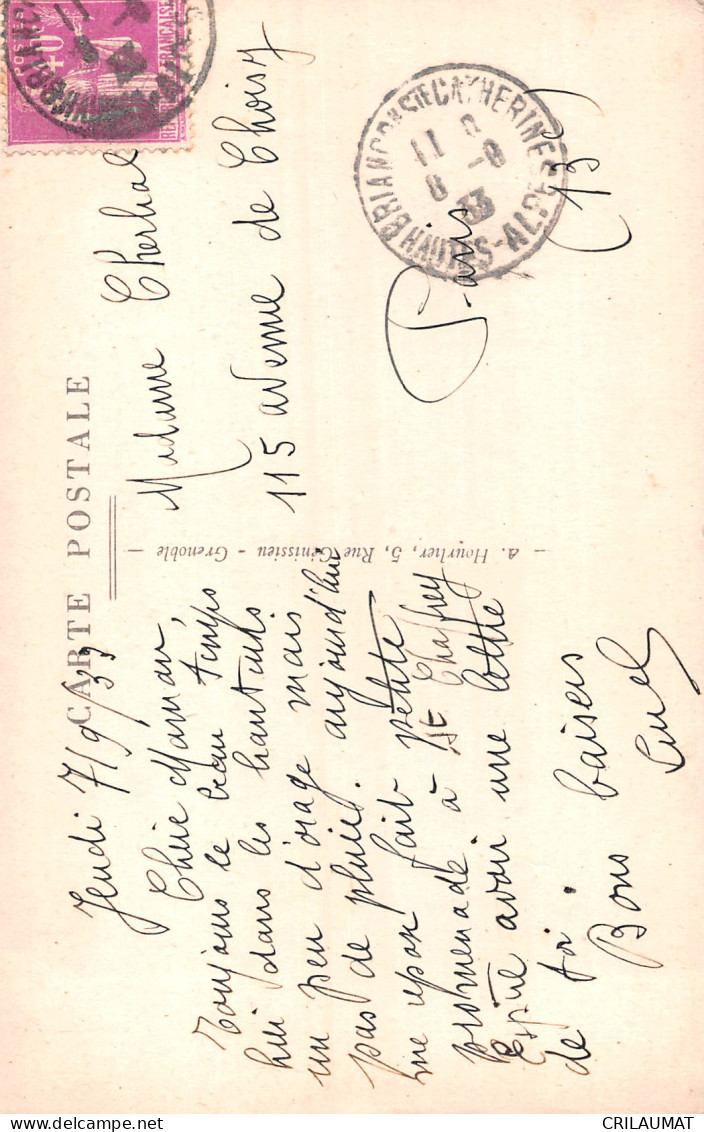 CARTE POSTALE
Jeudi 7/9/33
Chère Maman,
Toujours le beau temps
ici dans les hauteurs
un peu d'orage mais
pas de pluie. aujourd'hui
une repos fait petite
promenade à St Chaffrey
Espère avoir une lettre
de toi.
Bons baisers
A. Hourlier, 5, Rue Génissieu - Grenoble
Madame Cherhal
115 avenue de Choisy
Paris (13
BRIANCON STE CATHERINE
HAUTES-ALPES
11
8 -9
33
POSTES
40
FRANCAISE
CRILAUMAT